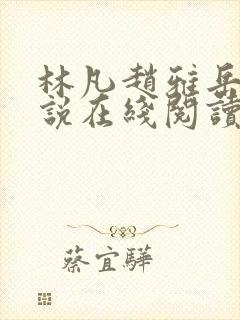 林凡趙雅岳
說在綫閱讀
蔡宜驊